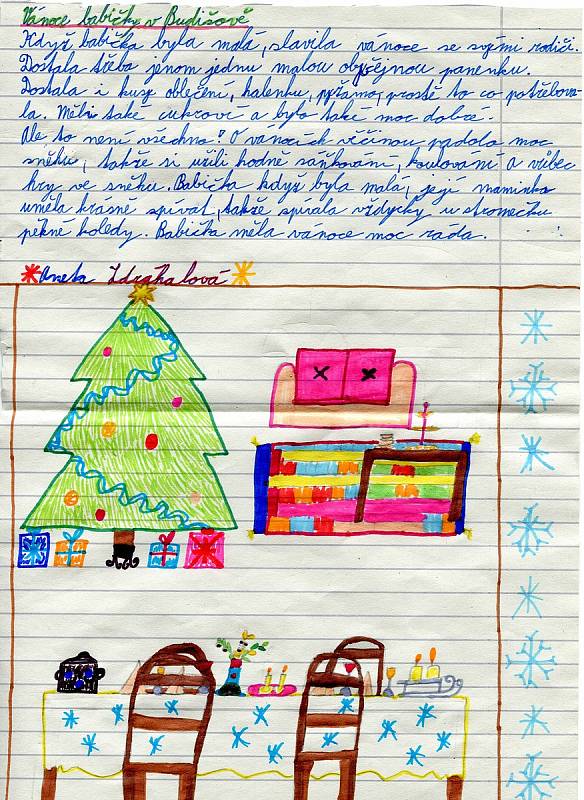 Vánoce babičky v Budišově
Když babička byla malá, slavila vánoce se svými rodiči.
Dostala třeba jenom jednu malou obyčejnou panenku.
Dostala i kusy oblečení, halenku, pyžamo, prostě to co potřebova-
la. Měli také cukroví a bylo také moc dobré.
Ale to není všechno! O vánocích většinou padalo moc
sněhu, takže si užili hodně sáňkování, koulování a vůbec
hry ve sněhu. Babička když byla malá, její maminka
uměla krásně spívat, takže spívala vždycky u stromečku
pěkné koledy. Babička měla vánoce moc ráda.
Aneta Zdražalová